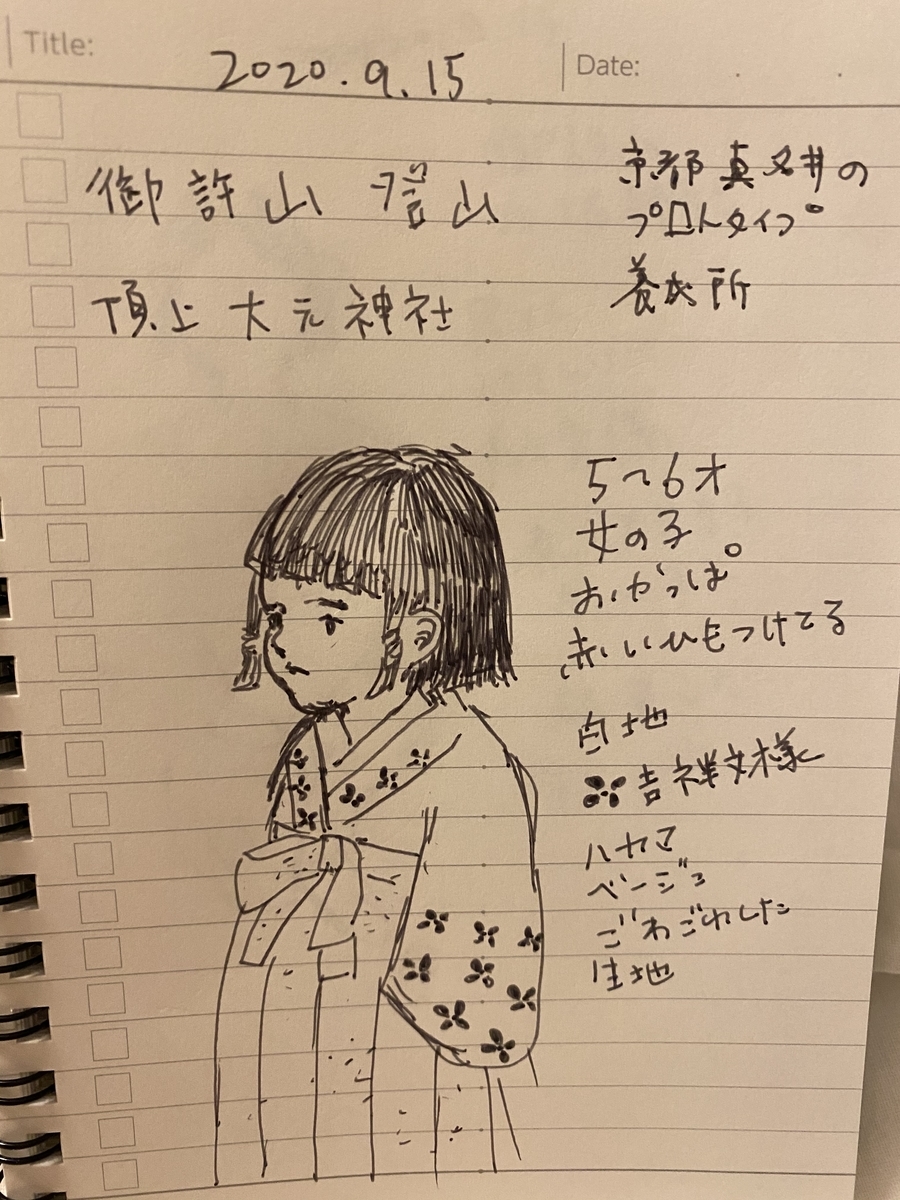 Title:
2020.9.15
Date:
御許山 登山
頂上 大元神社
京都真名井の
プロトタイプ
養成所
5〜6才
女の子
おかっぱ
赤いひもつけてる
白地
吉祥文様
ハカマ
ベージュ
ごわごわした
生地